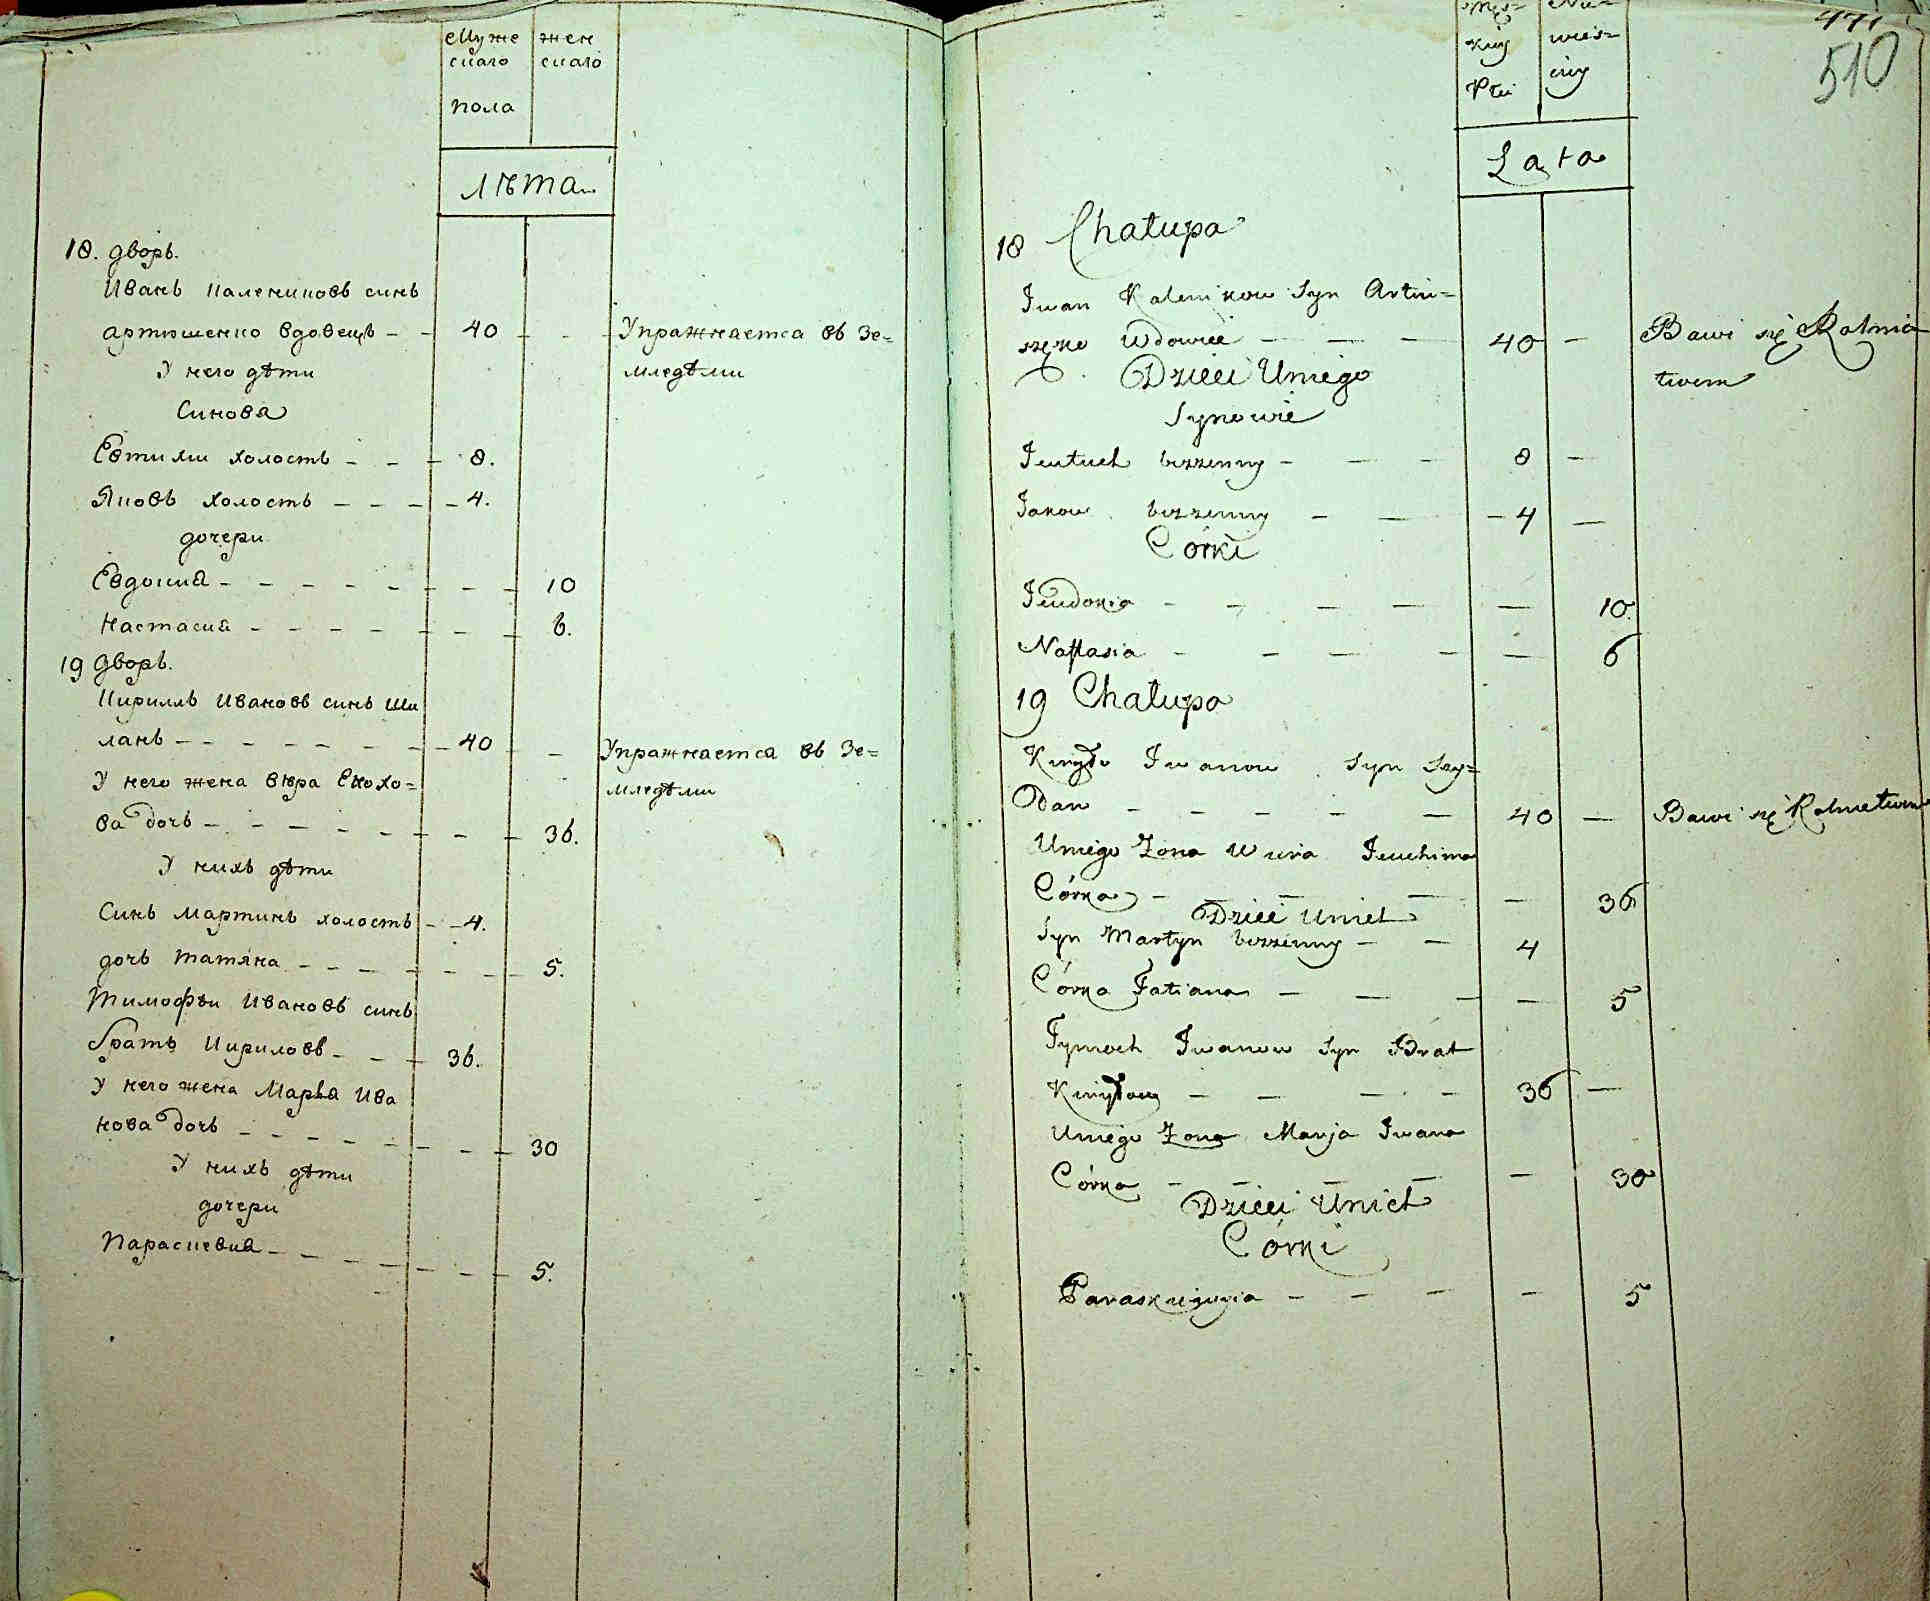 Муже жен
скаго скаго
пола
лѣта
18. дворъ.
Иванъ калениковъ синъ
артюшенко вдовецъ - - 40 - - - Упражнается въ Зе=
У него дѣти мледѣли
Синова
Евтихи холостъ - - - 8.
Яковъ холостъ - - - - 4.
дочери
Евдокиа - - - - - - - - 10
Настасиа - - - - - - - 6.
19 дворъ.
Кириллъ Ивановъ синъ Ши
ланъ - - - - - - - - 40 - - Упражнается въ Зе=
У него жена вѣра Евхо=  мледѣли
ва дочь - - - - - - - - 36.
У нихъ дѣти
Синъ Мартинъ холостъ - - 4.
дочь татяна - - - - - - - 5.
Тимофѣи Ивановъ синъ
братъ Кириловъ - - - 36.
У него жена Марьа Ива
нова дочь - - - - - - - - 30
У нихъ дѣти
дочери
Параскевиа - - - - - - - - 5.
471
510
Męs= Nie=
kiey wieś=
Płci ciey
Lata
18 Chałupa
Iwan Kalenikow Syn Artiu=
szęko Wdowiec - - - 40 - Bawi się Rolnic
Dzieci Uniego twem
Synowie
Jewtuch bezzenny - - - 8 -
Jakow bezzenny - - - 4 -
Córki
Jewdokia - - - - - 10.
Nastasia - - - - - 6
19 Chałupa
Kiryło Iwanow Syn Szy=
łan - - - - - 40 - Bawi się Rolnictwem
Uniego Zona Wiera Jewchima
Córka - - - - 36
Dzieci Unich
Syn Martyn bezzenny - - 4
Córka Tatiana - - - - 5
Tymoch Iwanow Syn Brat
Kiryłow - - - - 36 -
Uniego Zona Marja Iwana
Córka - - - - - 30
Dzieci Unich
Córki
Paraskiewia - - - - 5